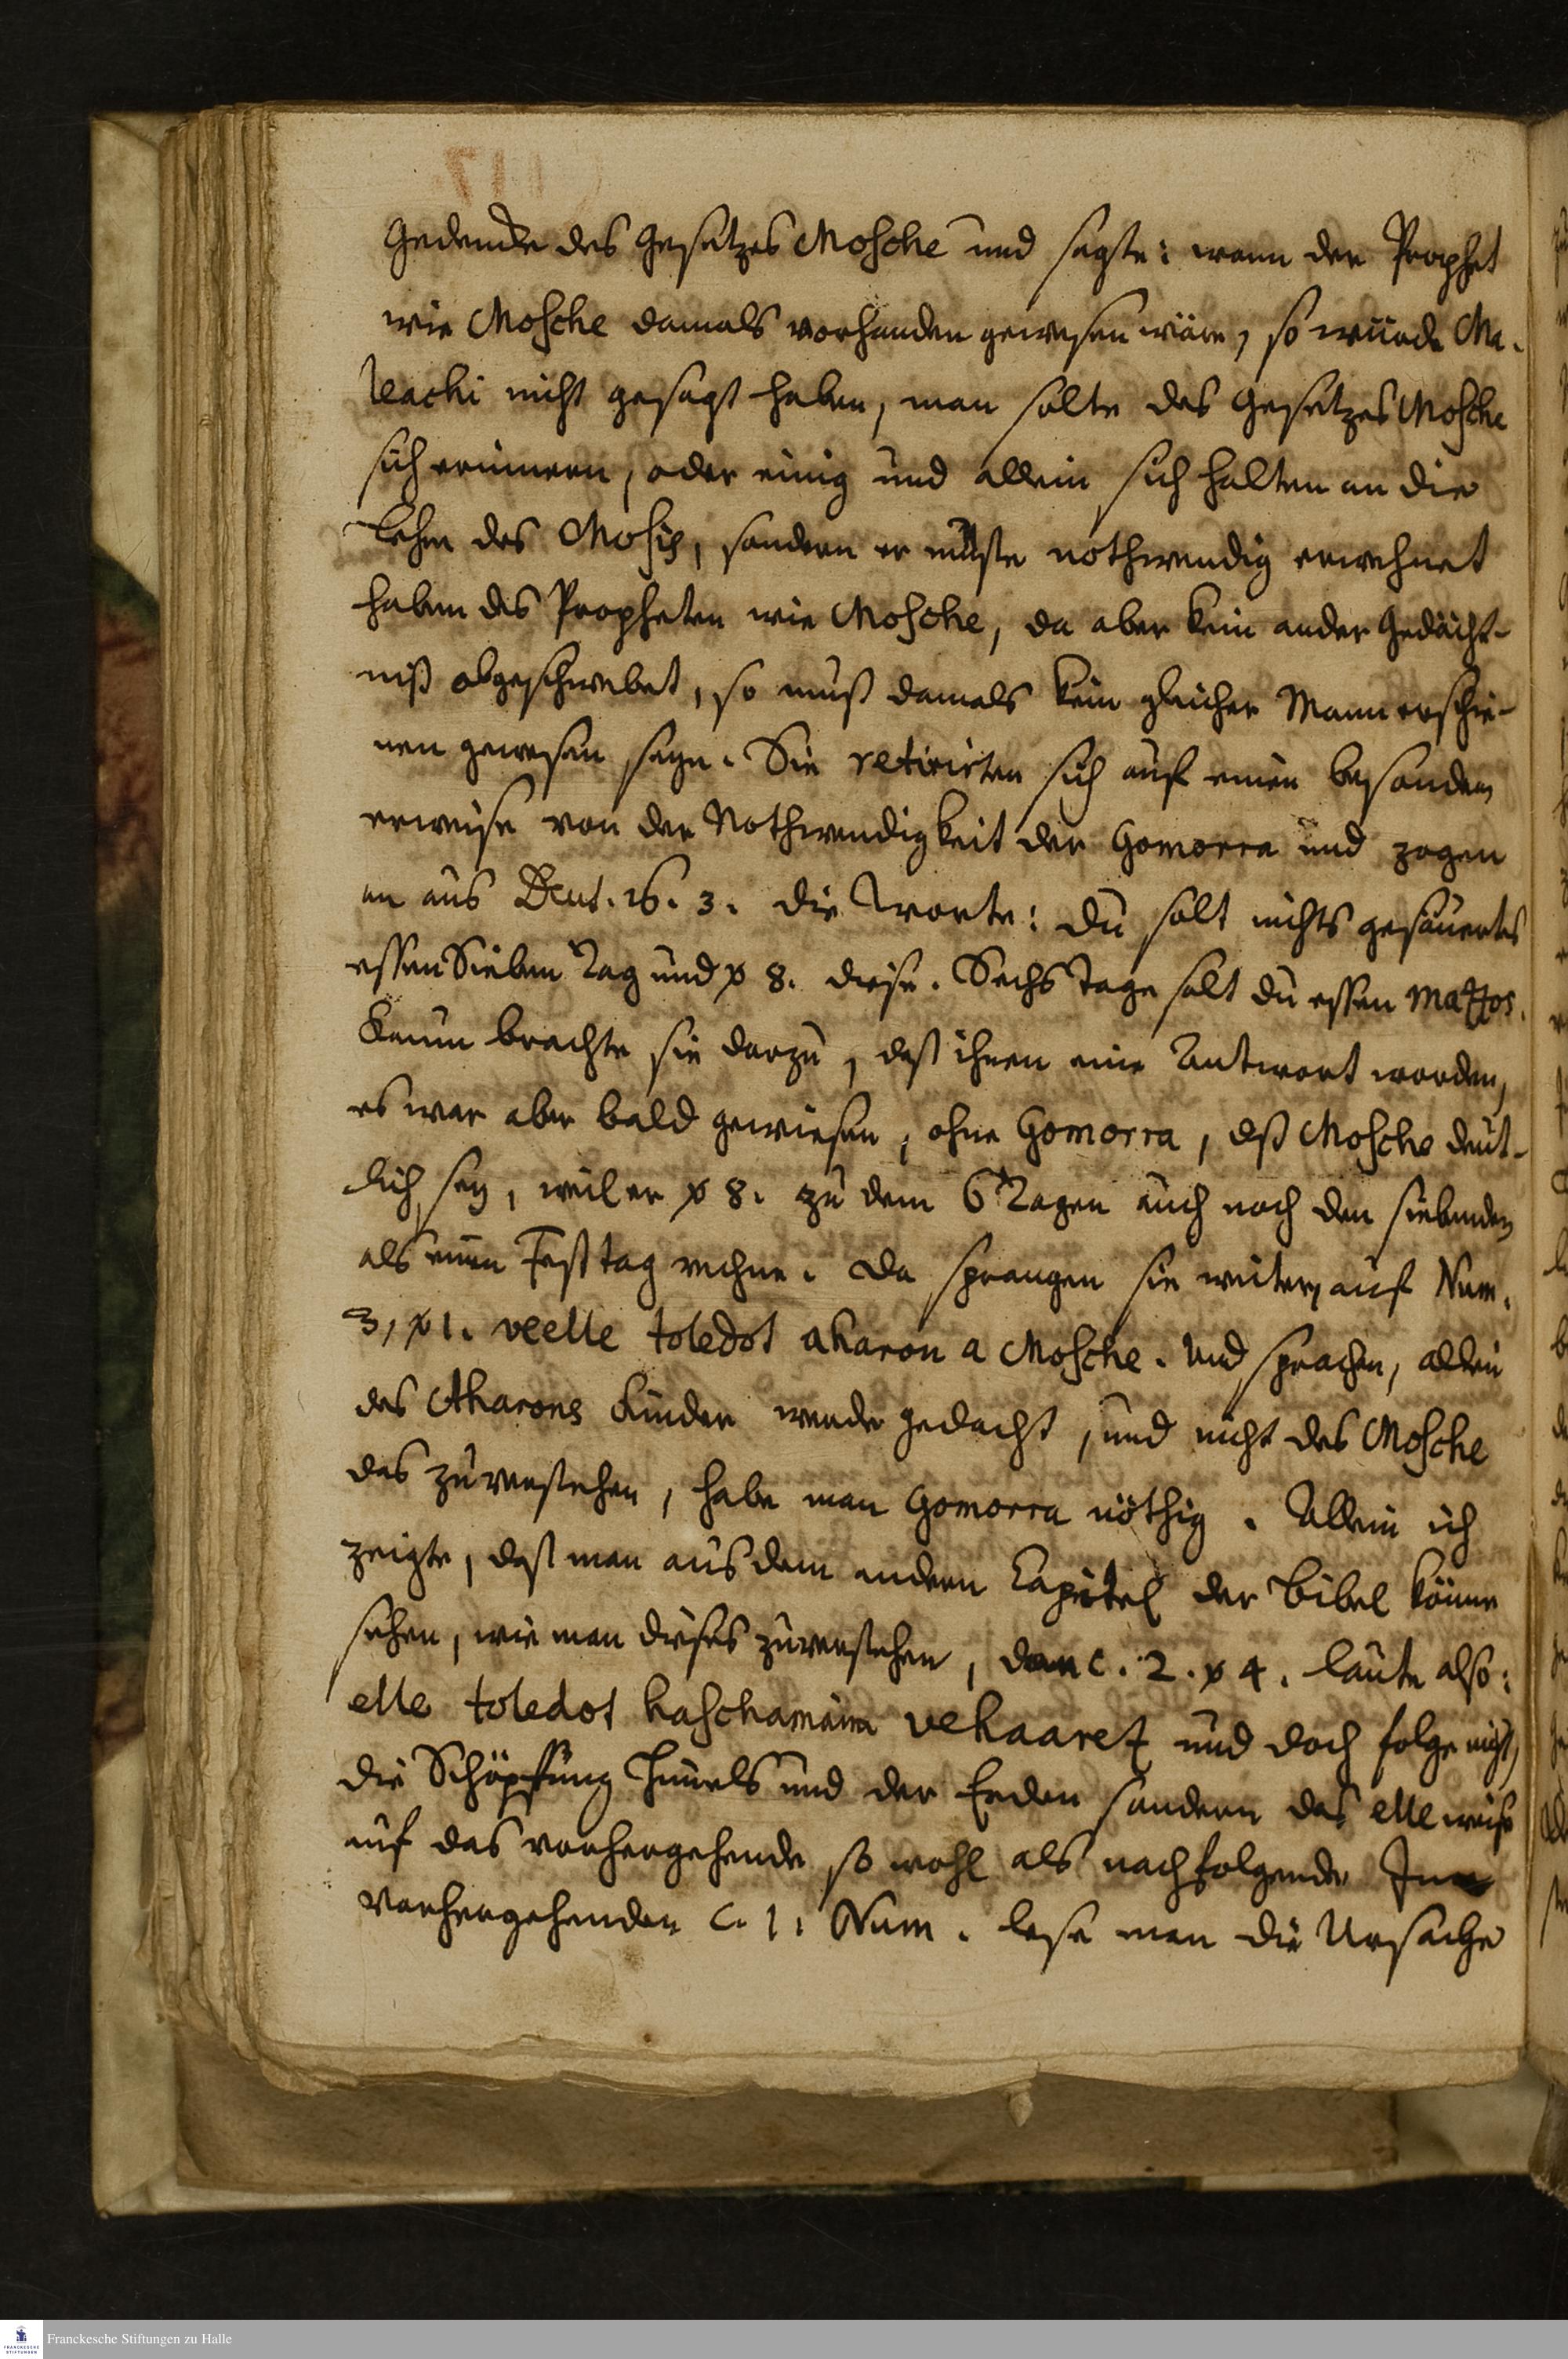 Gedencke des Gesetzes Mosche und sagte: wann der Prophet
wie Mosche damals vorhanden gewesen wäre, so würde Ma-
leachi nicht gesagt haben, man solte des Gesetzes Mosche
sich erinnern, oder einig und allein sich halten an die
Lehre des Mosis, sondern er müste nothwendig erwehnet
haben des Propheten wie Mosche, da aber kein ander Gedächt-
niß obgeschwebet, so muß damals kein gleicher Mann erschie-
nen gewesen seyn. Sie retirirten sich auf einen besondern
erweise von der Nothwendigkeit der Gomorra und zogen
an aus Deut. 16. 3. die Worte: du solt nichts gesäuertes
essen Sieben Tag und v 8. diese. Sechs Tage solt du essen mazzos.
Kaum brachte sie darzu, daß ihnen eine Antwort worden,
es war aber bald gewiesen, ohne Gomorra, daß Mosche deut-
lich sey, weil er v 8. zu dem 6 Tagen auch noch den siebenden
als einen Festtag rechne. Da sprangen sie weiter auf Num.
3, v 1. veelle toledot aharon a Mosche. Und sprachen, allein
des Aharons Kinder werde gedacht, und nicht des Mosche
das zuverstehen, habe man Gomorra nöthig. Allein ich
zeigte, daß man aus dem andern Capitel der Bibel könne
sehen, wie man dieses zuverstehen, dan c. 2. v 4. laute also:
elle toledot haschamaim vehaarez und doch folge nicht,
die Schöpffung Himels und der Erden sondern das elle weise
auf das vorhergehende so wohl als nachfolgende Im
vorhergehenden c. 1. Num. lese man die Ursache
Franckesche Stiftungen zu Halle